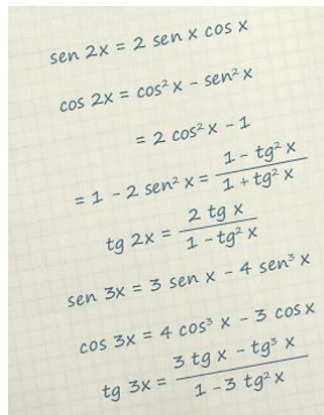 sen 2x = 2 sen x cos x
cos 2x = cos² x - sen² x
= 2 cos² x - 1
= 1 - 2 sen² x = (1 - tg² x)/(1 + tg² x)
tg 2x = (2 tg x)/(1 - tg² x)
sen 3x = 3 sen x - 4 sen³ x
cos 3x = 4 cos³ x - 3 cos x
tg 3x = (3 tg x - tg³ x)/(1 - 3 tg² x)